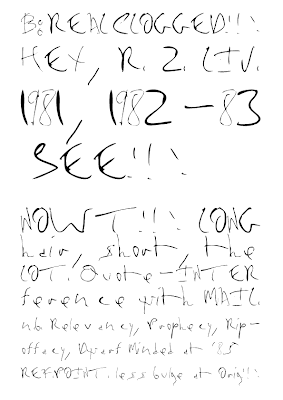 B: REALCLOGGED!!!
HEX, R. Z. LIV.
1981, 1982 - 83
SEE!!!
NOWT!!! LONG
hair, short, the
LOT. Quote - INTER
ference with MAIL.
nb Relevancy, Prophecy, Rip-
offacy, Minded at '85
REFPOINT. less at Orig!!!